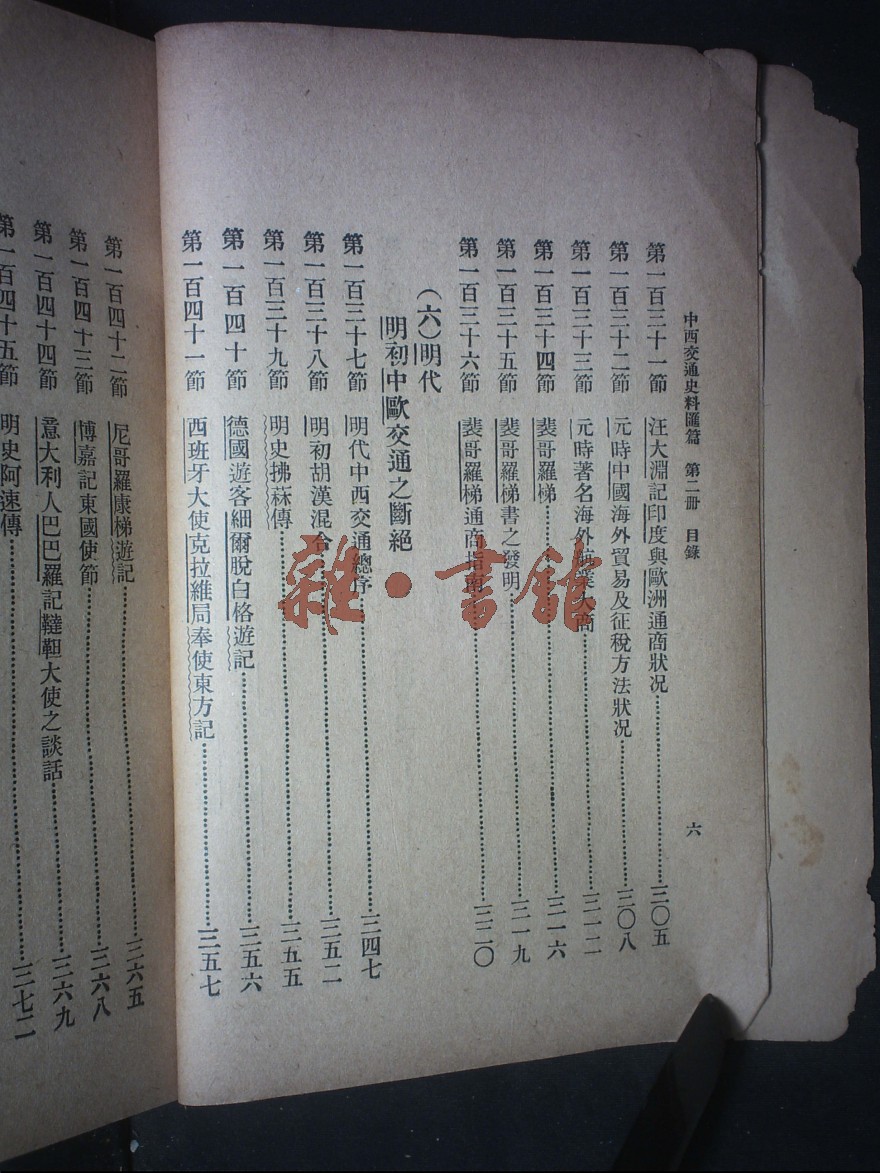 中西交通史料匯篇 第二册 目錄 六
第一百三十一節 汪大淵記印度與歐洲通商狀況 三〇五
第一百三十二節 元時中國海外貿易及征稅方法狀況 三〇八
第一百三十三節 元時著名海外航業大商 三一二
第一百三十四節 裴哥羅梯 三一六
第一百三十五節 裴哥羅梯書之發明 三一九
第一百三十六節 裴哥羅梯通商指南 三二〇
(六)明代
明初中歐交通之斷絕
第一百三十七節 明代中西交通總序 三四七
第一百三十八節 明初胡漢混合 三五二
第一百三十九節 明史拂菻傳 三五五
第一百四十節 德國遊客細爾脫白格遊記 三五六
第一百四十一節 西班牙大使克拉維局奉使東方記 三五七
第一百四十二節 尼哥羅康梯遊記 三六五
第一百四十三節 博嘉記東國使節 三六八
第一百四十四節 意大利人巴巴羅記韃靼大使之談話 三六九
第一百四十五節 明史阿速傳 三七二
雜·書館